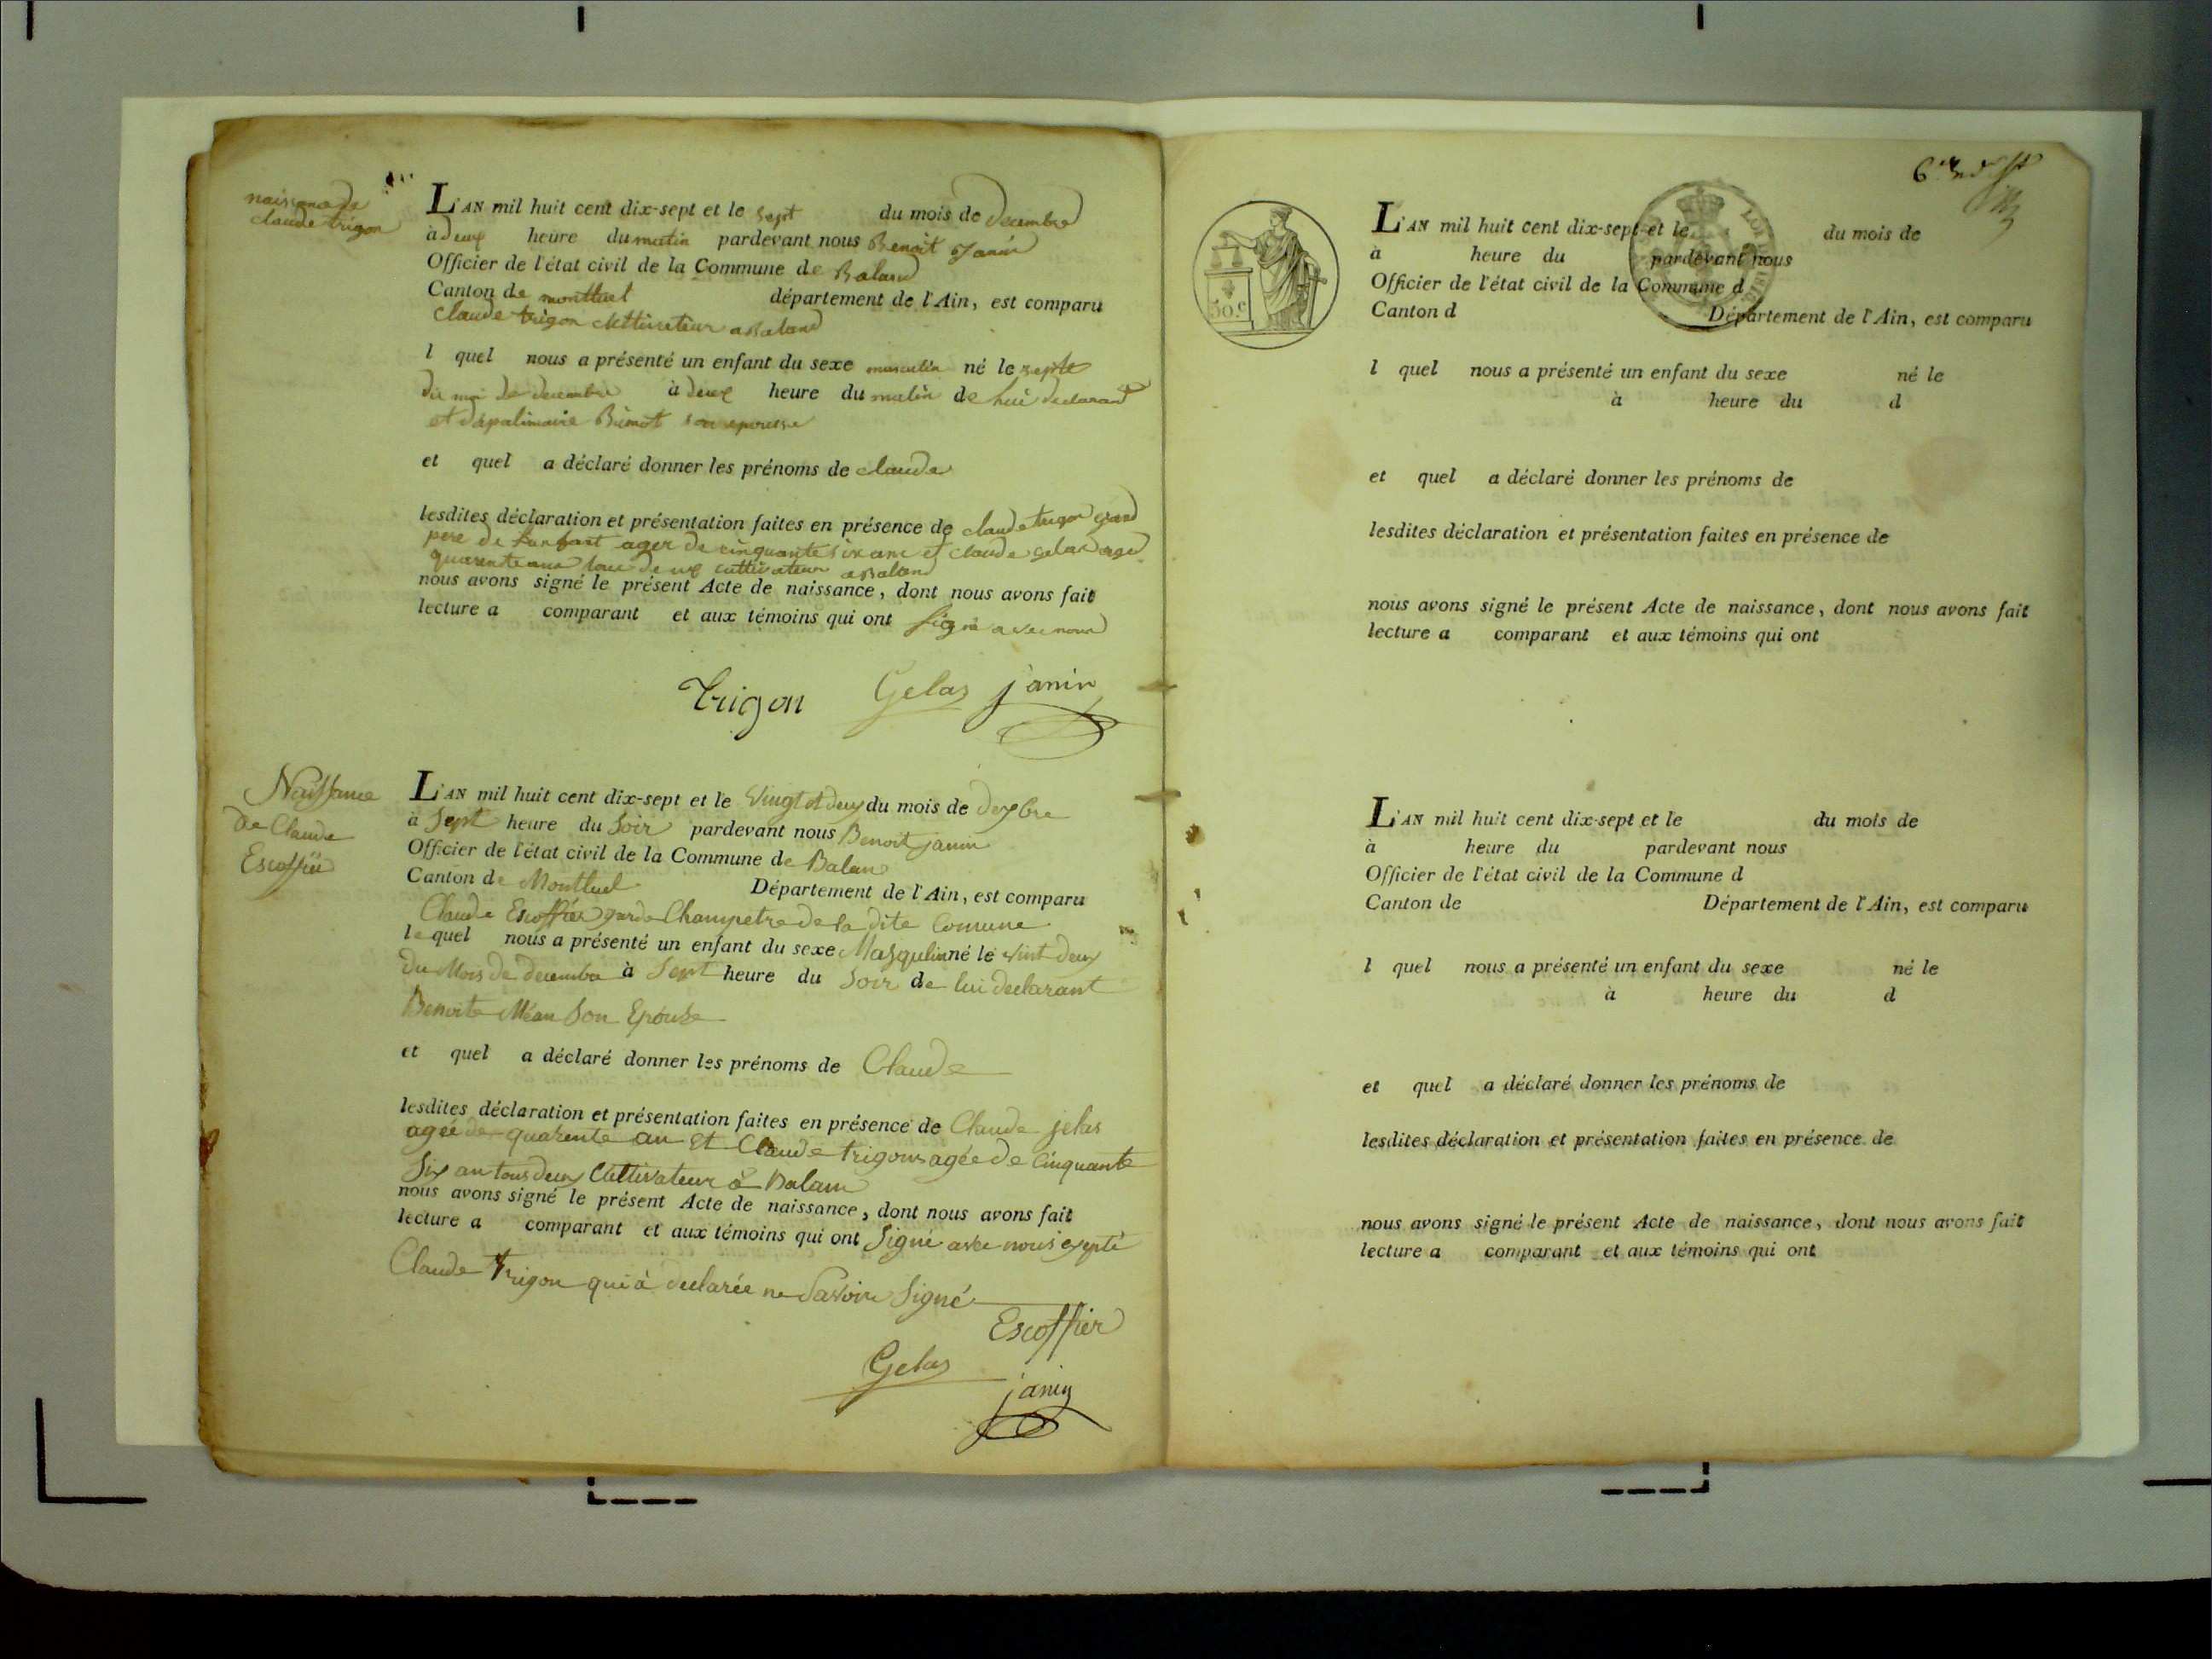 naissance de
claude trigon
L'AN mil huit cent dix-sept et le sept du mois de decembre
à deux heure du matin pardevant nous Benoit Janin
Officier de l'état civil de la Commune de Baland
Canton de montluel département de l'Ain, est comparu
claude trigon clttivateur a Baland
l quel nous a présenté un enfant du sexe masculin né le septe
du moi de decembre à deux heure du matin de lui declarant
et Bimot son epousse
et quel a déclaré donner les prénoms de claude
lesdites déclaration et présentation faites en présence de claude trigon grand
pere de agee de cinquante six ans et claude gelas age
quarente ans tou deux cultivateur a Baland
nous avons signé le présent Acte de naissance, dont nous avons fait
lecture a comparant et aux témoins qui ont signé avec nous
trigon Gelas janin
Naissance
de Claude
Escoffié
L'AN mil huit cent dix-sept et le Vingt et deux du mois de dexbre
à Sept heure du Soir pardevant nous Benoit janin
Officier de l'état civil de la Commune de Balan
Canton de Montluel Département de l'Ain, est comparu
Claude Escoffier garde Champetre de la dite Comune
le quel nous a présenté un enfant du sexe Masqulin né le vint deux
Du Mois de decembre à Sept heure du Soir de lui declarant
Benoite Méan Son Epouse
et quel a déclaré donner les prénoms de Claude
lesdites déclaration et présentation faites en présence de Claude jelas
agée de quarente an et Claude trigon agée de Cinquante
Six an tous deux Cultivateur à Balan
nous avons signé le présent Acte de naissance, dont nous avons fait
lecture a comparant et aux témoins qui ont Signé avec nous exepté
Claude trigon qui à declarée ne Savoir Signé
Escoffier
Gelas
janin
50.c
L'AN mil huit cent dix-sept et le du mois de
à heure du pardevant nous
Officier de l'état civil de la Commune d
Canton d Département de l'Ain, est comparu
l quel nous a présenté un enfant du sexe né le
à heure du d
et quel a déclaré donner les prénoms de
lesdites déclaration et présentation faites en présence de
nous avons signé le présent Acte de naissance, dont nous avons fait
lecture a comparant et aux témoins qui ont
L'AN mil huit cent dix-sept et le du mois de
à heure du pardevant nous
Officier de l'état civil de la Commune d
Canton de Département de l'Ain, est comparu
l quel nous a présenté un enfant du sexe né le
à heure du d
et quel a déclaré donner les prénoms de
lesdites déclaration et présentation faites en présence de
nous avons signé le présent Acte de naissance, dont nous avons fait
lecture a comparant et aux témoins qui ont